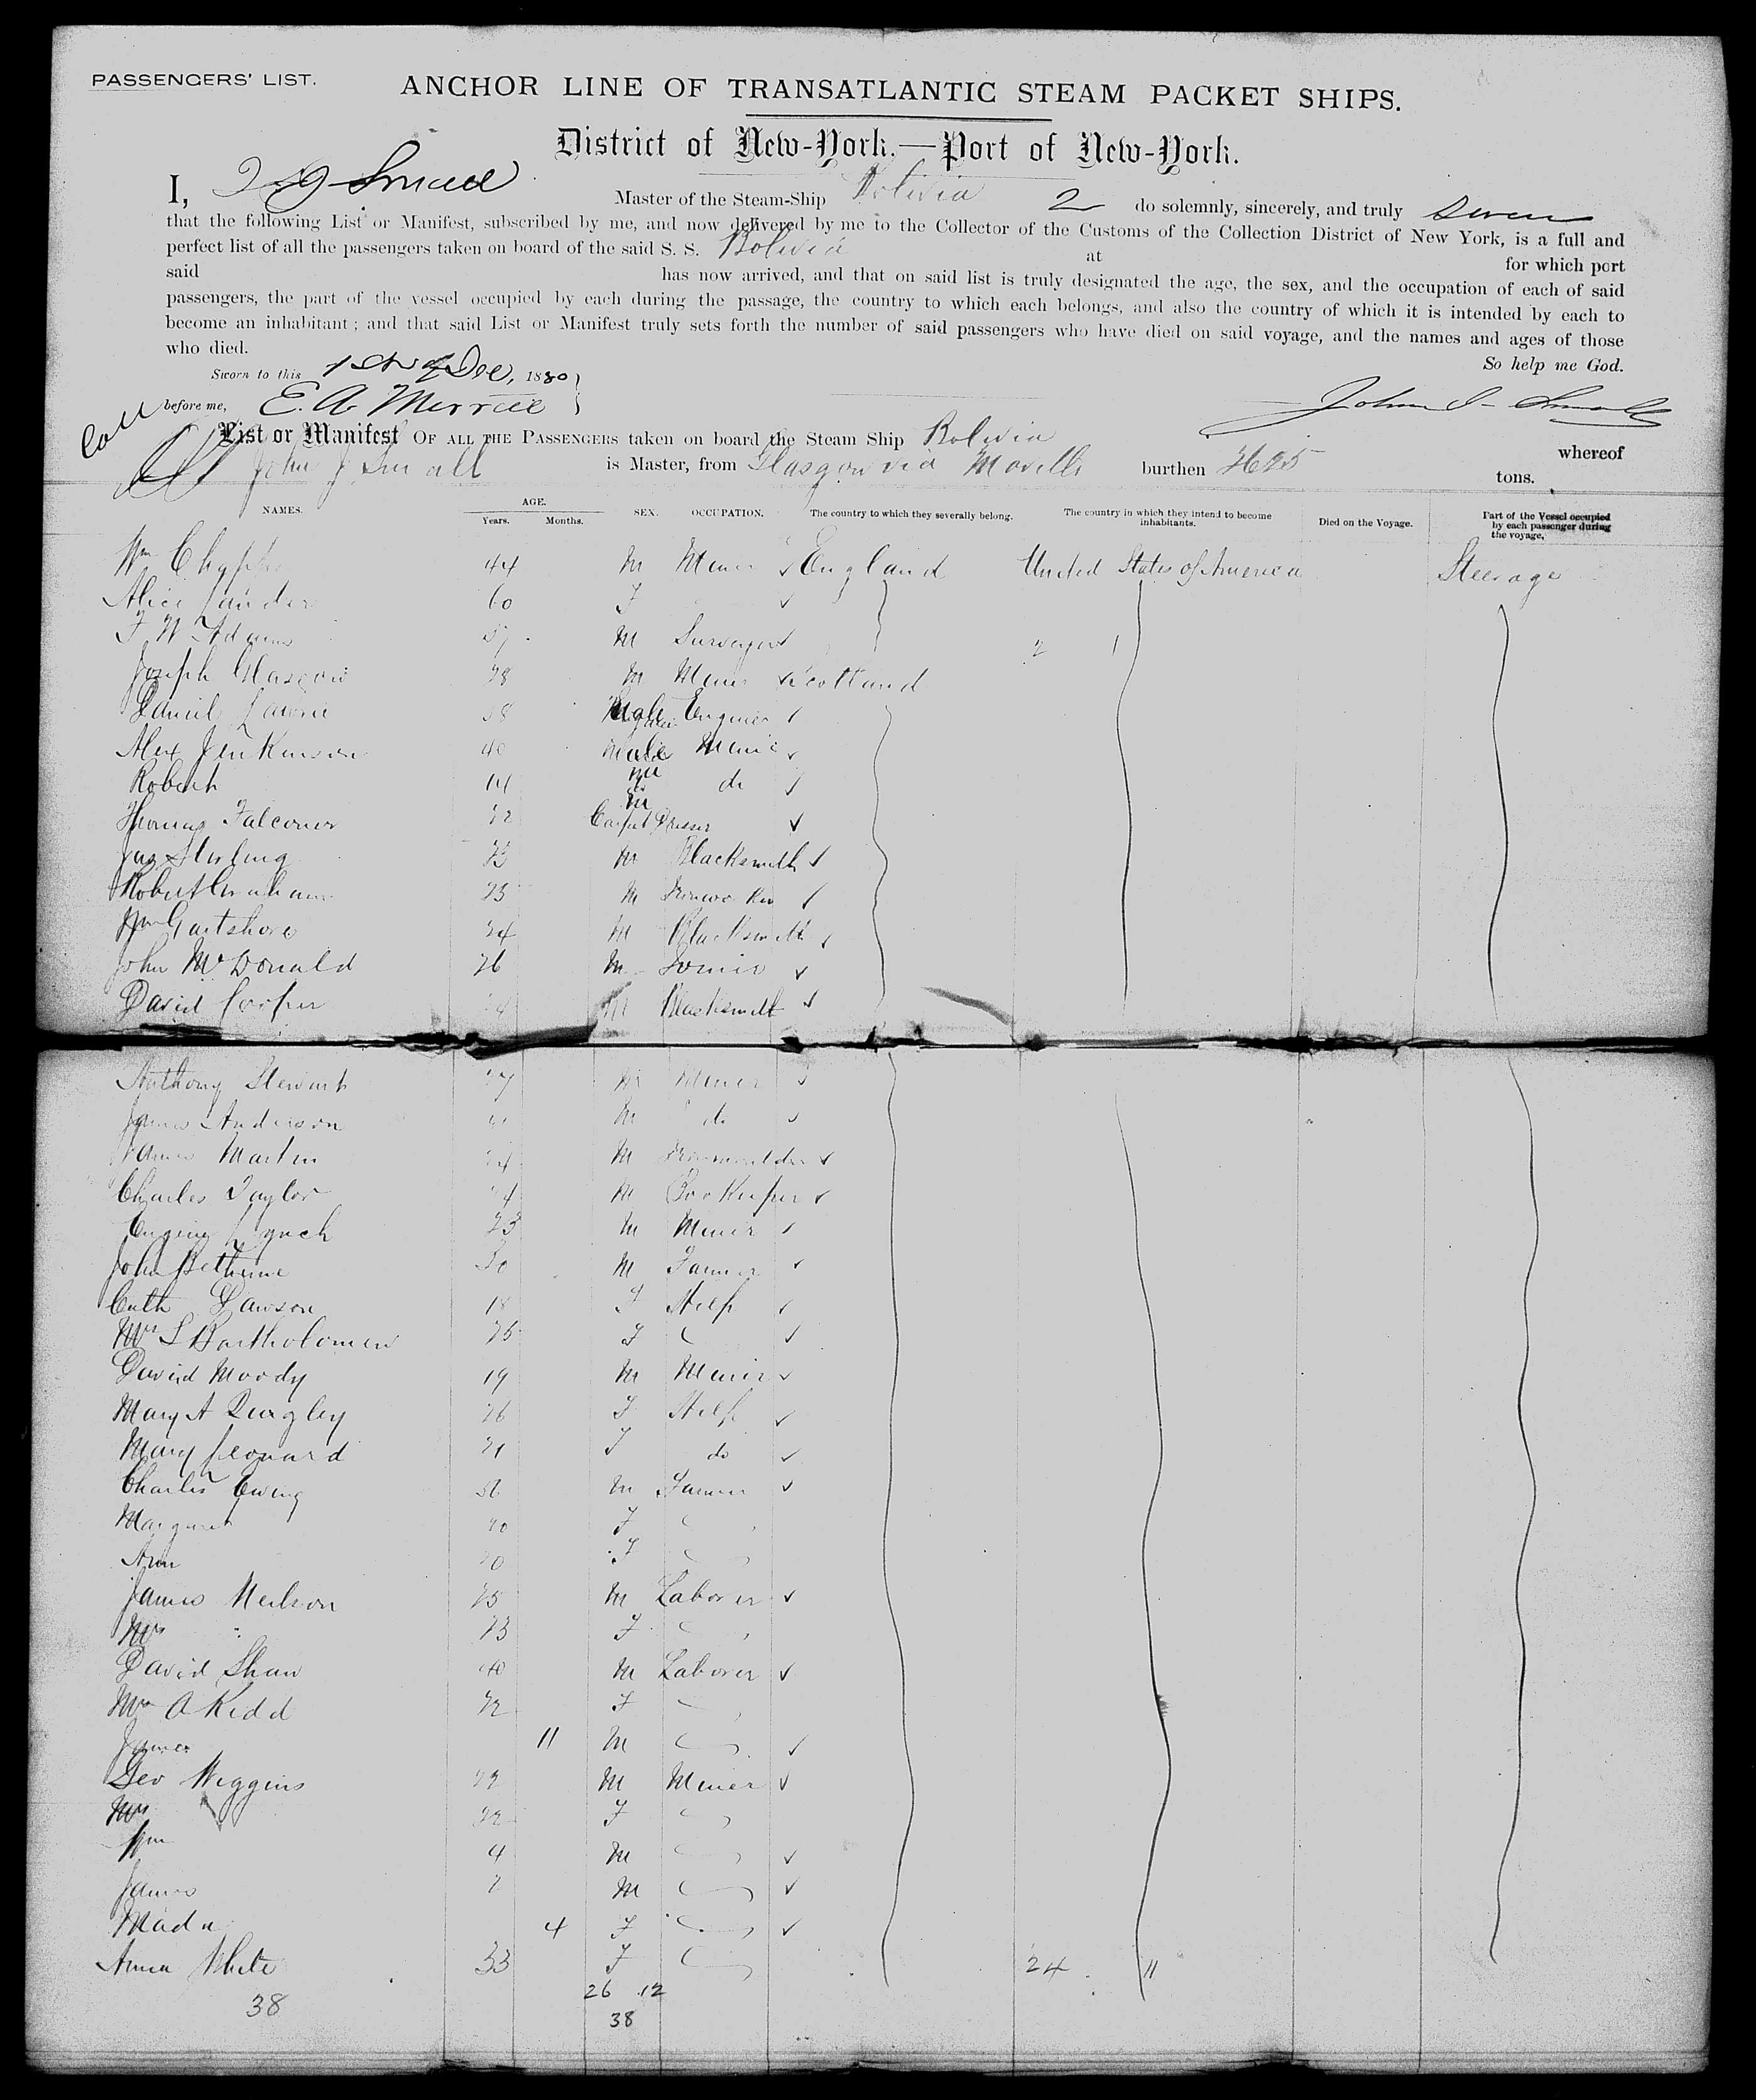 PASSENGERS' LIST.
ANCHOR LINE OF TRANSATLANTIC STEAM PACKET SHIPS.
District of New-York.—Port of New-York.
I, Small Master of the Steam-Ship Bolivia do solemnly, sincerely, and truly swear
that the following List or Manifest, subscribed by me, and now delivered by me to the Collector of the Customs of the Collection District of New York, is a full and
perfect list of all the passengers taken on board of the said S. S. Bolivia at for which port
said has now arrived, and that on said list is truly designated the age, the sex, and the occupation of each of said
passengers, the part of the vessel occupied by each during the passage, the country to which each belongs, and also the country of which it is intended by each to
become an inhabitant; and that said List or Manifest truly sets forth the number of said passengers who have died on said voyage, and the names and ages of those
who died. So help me God.
Sworn to this 1st Dec, 1880
before me, E. A. Merrill John J Small
List or Manifest OF ALL THE PASSENGERS taken on board the Steam Ship Bolivia whereof
John J Small is Master, from Glasgow via Moville burthen 2625 tons.
NAMES. AGE. Years. Months. SEX. OCCUPATION. The country to which they severally belong. The country in which they intend to become inhabitants. Died on the Voyage. Part of the Vessel occupied by each passenger during the voyage.
Wm 44 M Miner England United States of America Steerage
Alice 60 F
F W Adams M Surveyor 2 1
Joseph Glasgow 28 M Miner Scotland
Daniel Lawrie 38 Male Engineer
Alex Jenkinson 40 Male Miner
Robert 14 M do
Thomas Falconer 22 M Carpet Dresser
Jas Stirling M Blacksmith
Robert Graham 23 M
Wm Gartshore 24 M Blacksmith
John McDonald 26 M
David Cooper M Blacksmith
Anthony Stewart M Miner
James Anderson M do
James Martin 24 M Ironmoulder
Charles Taylor M Bookeeper
Eugene Lynch 23 M Miner
John Bethune 30 M Farmer
Cath Lawson 18 F Help
Mrs L Bartholomew 25 F
David Moody 19 M Miner
Mary A Quigley 26 F Help
Mary Leonard 21 F do
Charles Ewing M Farmer
Margaret F
Ann 20 F
James Neilson 25 M Laborer
Mrs " 23 F
David Shaw 40 M Laborer
Mrs A Kidd 22 F
James 11 M
Geo Wiggins 22 M Miner
Mrs 22 F
Wm 4 M
James 2 M
4 F
Anna White 33 F 24 11
26 12
38
38